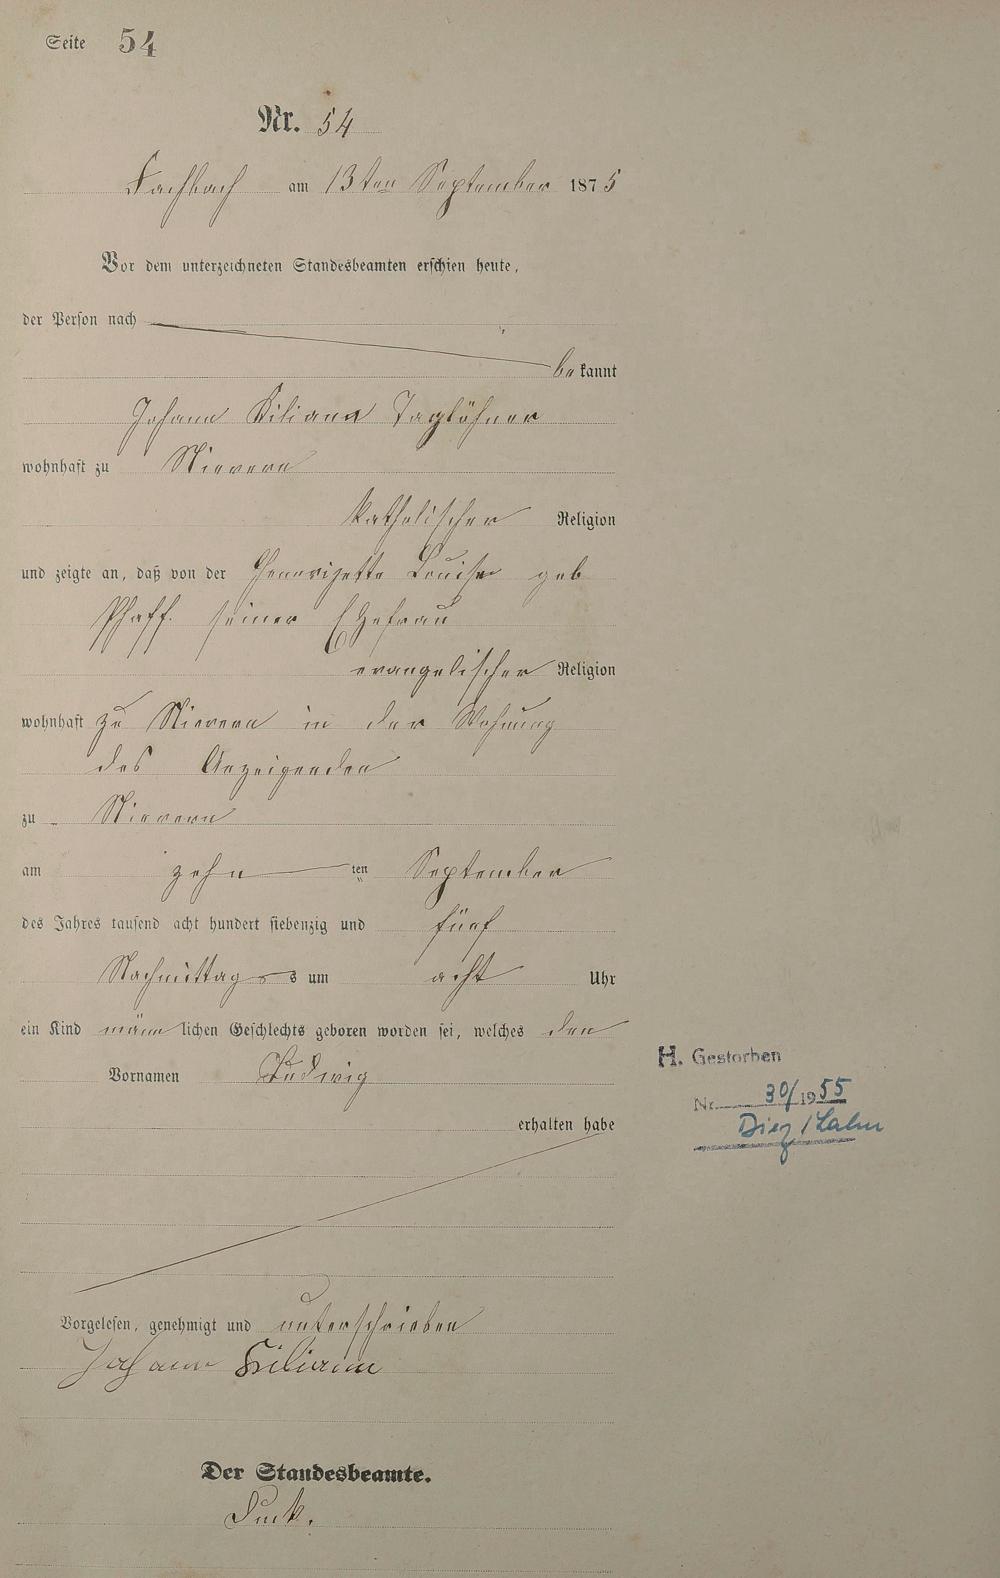 Seite 54
Nr. 54
Fachbach am 13ten September 1875
Vor dem unterzeichneten Standesbeamten erschien heute,
der Person nach
bekannt
Johann Kilian Taglöhner
wohnhaft zu Nievern
katholischer Religion
und zeigte an, daß von der Henrizette Louise geb
Pfaff. seiner Ehefrau
evangelischer Religion
wohnhaft zu Nievern in der Wohnung
des Anzeigenden
zu Nievern
am zehn ten September
des Jahres tausend acht hundert siebenzig und fünf
Nachmittag s um acht Uhr
ein Kind männlichen Geschlechts geboren worden sei, welches den
Vornamen Ludwig
erhalten habe
H. Gestorben
Nr. 30/1955
Diez/Lahn
Vorgelesen, genehmigt und unterschrieben
Johann Kilian
Der Standesbeamte.